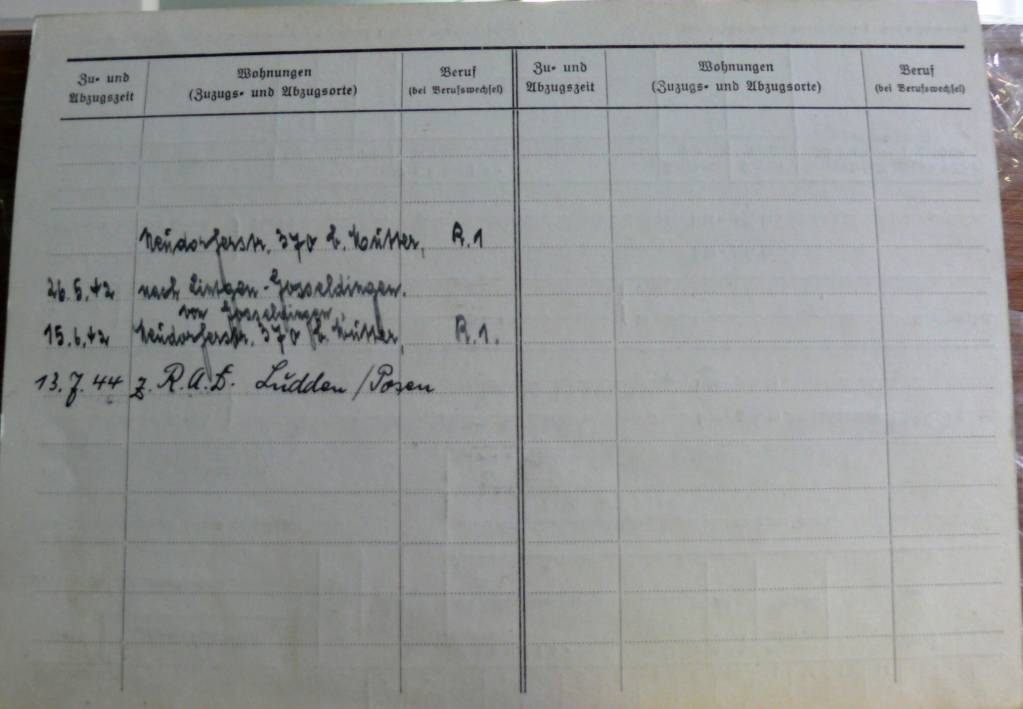 Zu- und Abzugszeit
Wohnungen (Zuzugs- und Abzugsorte)
Beruf (bei Berufswechsel)
Zu- und Abzugszeit
Wohnungen (Zuzugs- und Abzugsorte)
Beruf (bei Berufswechsel)
Neudorferstr. 370 b. Mutter, R.1
26.5.42 nach Lintgen-Gosseldingen.
von Gosseldingen,
15.6.42 Neudorferstr. 370 b. Mutter, R.1.
13.7.44 z. R.A.D. Ludden/Posen